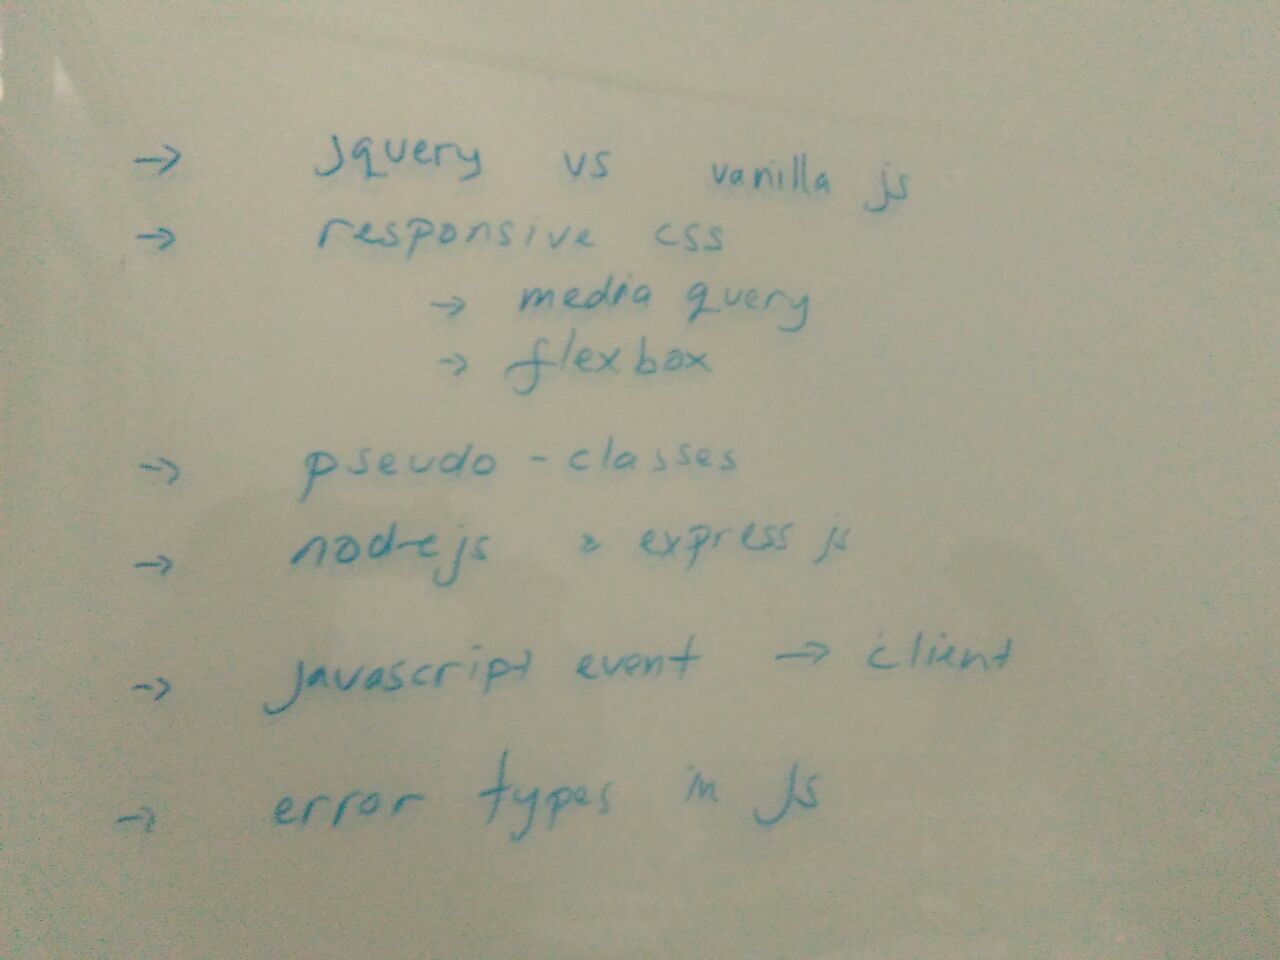 → jquery vs vanilla js
→ responsive css
→ media query
→ flexbox
→ pseudo-classes
→ nodejs & express js
→ javascript event → client
→ error types in Js